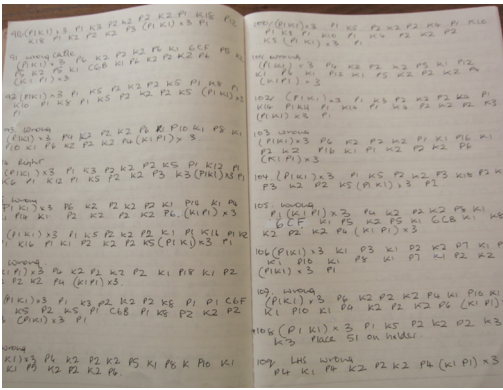 90 (P1 K1) x3 P1 K3 P2 K2 P2 K2 P1 K18 P12
K18 P1 K2 P2 K2 P3 (P1 K1) x3 P1
91 wrong Cable
(P1 K1) x3 P6 K2 P2 K2 P6 K1 6CF P5 K2
P5 K2 P5 K1 C6B K1 P6 K2 P2 K2 P6
(K1 P1) x3
92 (P1 K1) x3 P1 K5 P2 K2 P2 K5 P1 K8 P1
K10 P1 K8 P1 K5 P2 K2 P2 K5 (P1 K1) x3
P1
93 wrong
(P1 K1) x3 P4 K2 P2 K2 P6 K1 P10 K1 P8 K1
P10 K1 P6 K2 P2 K2 P4 (K1 P1) x3
Right
(P1 K1) x3 P1 K3 P2 K2 P2 K5 P1 K12 P1
K6 P1 K12 P1 K5 P2 K2 P3 K3 (P1 K1) x3 P1
wrong
P1 K1) x3 P6 K2 P2 K2 P2 K1 P14 K1 P4
P14 K1 P2 K2 P2 K2 P6. (K1 P1) x3
(P1 K1) x3 P1 K5 P2 K2 P2 K1 P1 K16 P1 K2
P1 K16 P1 K1 P2 K2 P2 K5 (P1 K1) x3 P1
wrong
K1 P1) x3 P4 K2 P2 K2 P2 K1 P18 K1 P2
P2 K2 P4 (K1 P1) x3.
(P1 K1) x3 P1 K3 P2 K2 P2 K8 P1 P1 C6F
K5 P2 K5 P1 C6B P1 K8 P2 K2 P2
P1 K1) x3 P1
wrong
K1) x3 P6 K2 P2 K2 P5 K1 P8 K P10 K1
K1 P5 K2 P2 K2 P6.
100 (P1 K1) x3 P1 K5 P2 K2 P2 K6 P1 K10
P1 K8 P1 K10 P1 K6 P2 K2 P2
K5 (P1 K1) x3 P1
101 wrong
(P1 K1) x3 P4 K2 P2 K2 P5 K1 P12
K1 P6 K1 P12 K1 P5 K2 P2 K2 P4
(K1 P1) x3
102 (P1 K1) x3 P1 K3 P2 K2 P2 K4 P1
K14 P1 K4 P1 K14 P1 K4 P2 K2 P2 K3
(P1 K1) x3 P1
103 wrong
(P1 K1) x3 P6 K2 P2 K2 P2 K1 P1 P16 K1
P2 K2 P16 K1 P1 K2 P2 K2 P6
(K1 P1) x3
104 (P1 K1) x3 P1 K5 P2 K2 P3 K10 P2 K
P3 K2 P2 K5 (P1 K1) x3 P1
105. wrong
P1 (K1 P1) x3 P4 K2 P2 K2 P8 K1
6CF K1 P5 K2 P5 K1 6CB K1 K8
K2 P2 K2 P4 (K1 P1) x3
106 (P1 K1) x3 K1 P3 K1 P2 K2 P7 K1 P1
K1 P10 K1 P8 K1 P7 K1 P2 K2
(P1 K1) x3 P1
107. wrong
(P1 K1) x3 P6 K2 P2 K2 P4 K1 P10 K1
K1 P10 K1 P4 K2 P2 K2 P6 (K1 P1)
108 (P1 K1) x3 P1 K5 P2 K2 P2 K3
K3 Place 51 on holder.
109 LHS wrong
P4 K1 P4 K2 P2 K2 P4 (K1 P1) x3